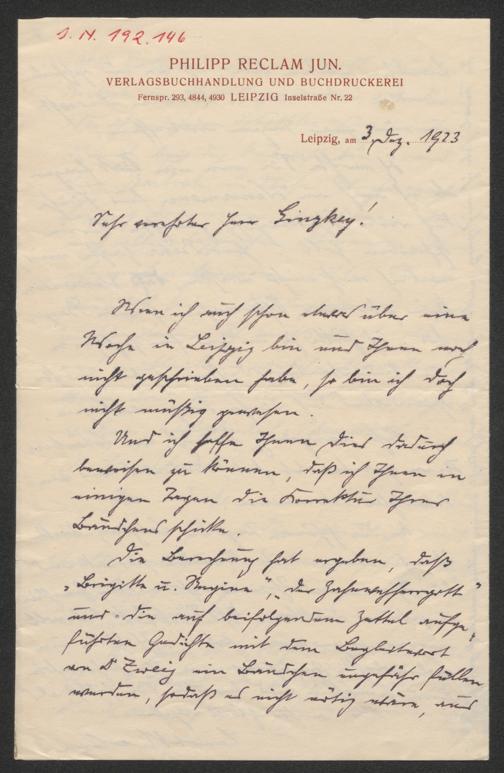 J. N. 192.146
PHILIPP RECLAM JUN.
VERLAGSBUCHHANDLUNG UND BUCHDRUCKEREI
Fernspr. 293, 4844, 4930 LEIPZIG Inselstraße Nr. 22
Leipzig, am 3. Dez. 1923
Sehr verehrter Herr Ginzkey!
Wenn ich auch schon etwas über eine
Woche in Leipzig bin und Ihnen noch
nicht geschrieben habe, so bin ich doch
nicht müßig gewesen.
Und ich hoffe Ihnen dies dadurch
beweisen zu können, daß ich Ihnen in
einigen Tagen die Korrektur Ihres
Bändchens schicke.
Die Berechnung hat ergeben, daß
„Brigitte u. Regine", „Der Zahnwehherrgott"
und die auf beifolgendem Zettel aufge-
führten Gedichte mit dem Begleitwort
von Dr Zweig ein Bändchen ungefähr füllen
werden, sodaß es nicht nötig wäre, aus